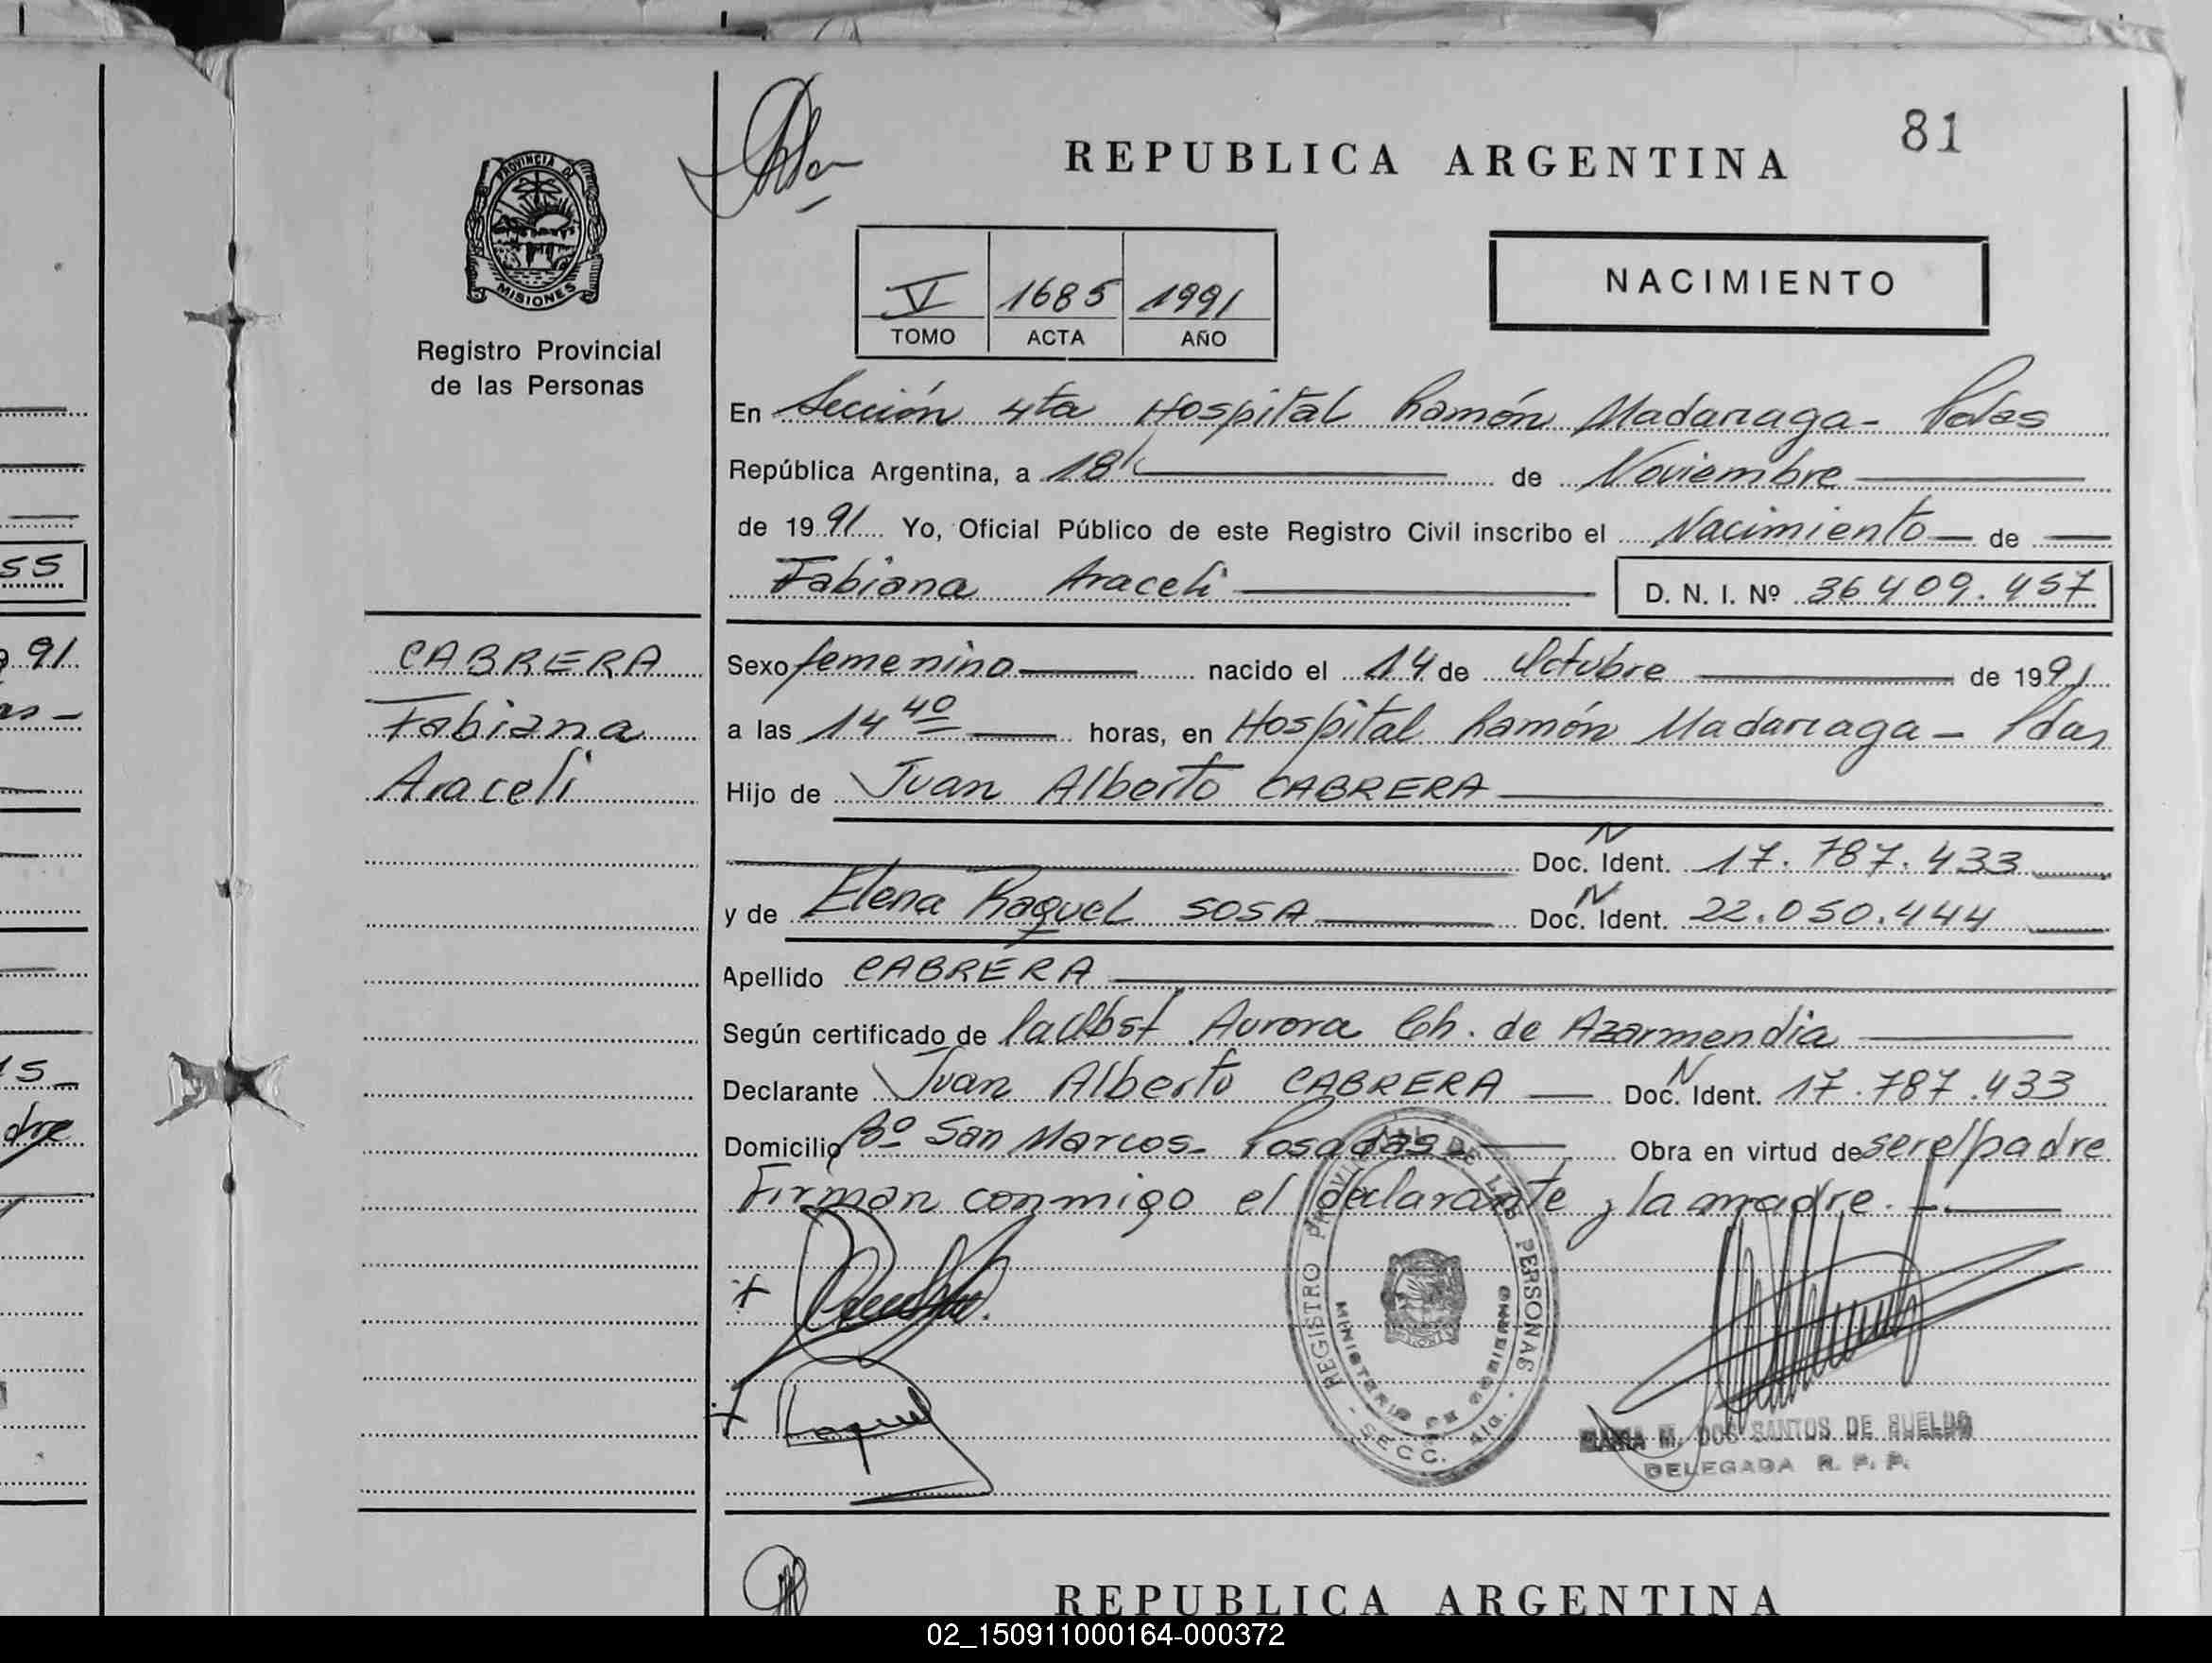 81
REPUBLICA ARGENTINA
PROVINCIA DE
MISIONES
Registro Provincial
de las Personas
V 1685 1991
TOMO ACTA AÑO
NACIMIENTO
En Sección 4ta Hospital Ramón Madariaga - Pdas
República Argentina, a 18 de Noviembre
de 1991 Yo, Oficial Público de este Registro Civil inscribo el Nacimiento de
Fabiana Araceli D. N. I. Nº 36409.457
CABRERA
Fabiana
Araceli
Sexo femenino nacido el 14 de Octubre de 1991
a las 14 40 horas, en Hospital Ramón Madariaga - Pdas
Hijo de Juan Alberto CABRERA
N
Doc. Ident. 17.787.433
y de Elena Raquel SOSA Doc. N Ident. 22.050.444
Apellido CABRERA
Según certificado de la Obst. Aurora Ch. de Azarmendia
Declarante Juan Alberto CABRERA Doc. N Ident. 17.787.433
Domicilio Bº San Marcos - Posadas Obra en virtud de ser el padre
Firman conmigo el declarante y la madre.-
REGISTRO PROVINCIAL DE LAS PERSONAS
MINISTERIO DE GOBIERNO
- SECC. 4ta. -
Raquel
MARIA M. DOS SANTOS DE SUELDO
DELEGADA R. P. P.
REPUBLICA ARGENTINA
55
91
as -
s -
dre
02_150911000164-000372